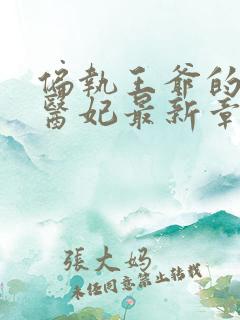 偏執王爺的
醫妃最新章
張大妈
未经同意禁止转载